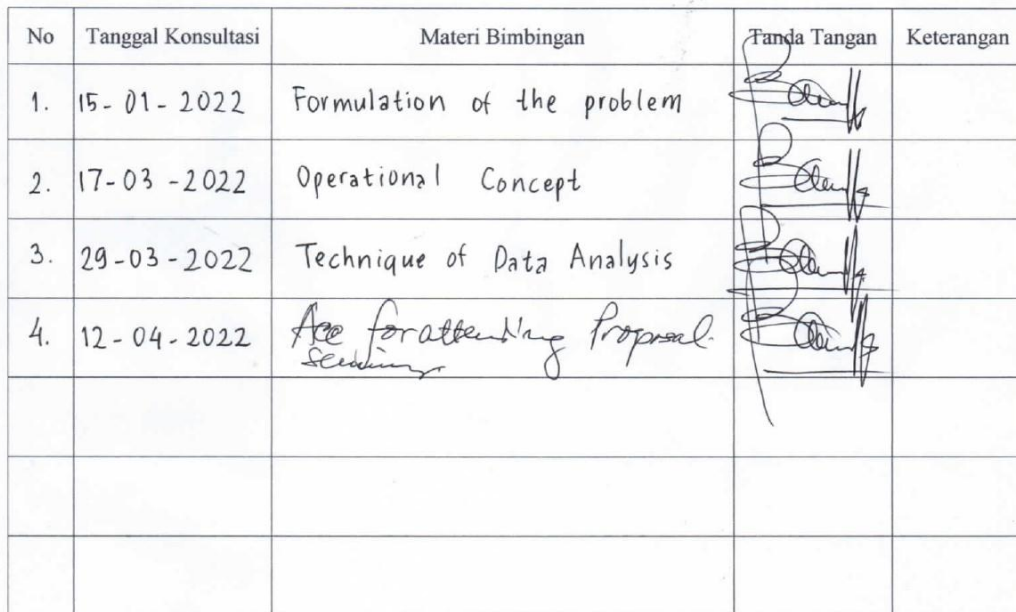 No Tanggal Konsultasi Materi Bimbingan Tanda Tangan Keterangan
1. 15-01-2022 Formulation of the problem
2. 17-03-2022 Operational Concept
3. 29-03-2022 Technique of Data Analysis
4. 12-04-2022 Acc for attending Proposal
seminar